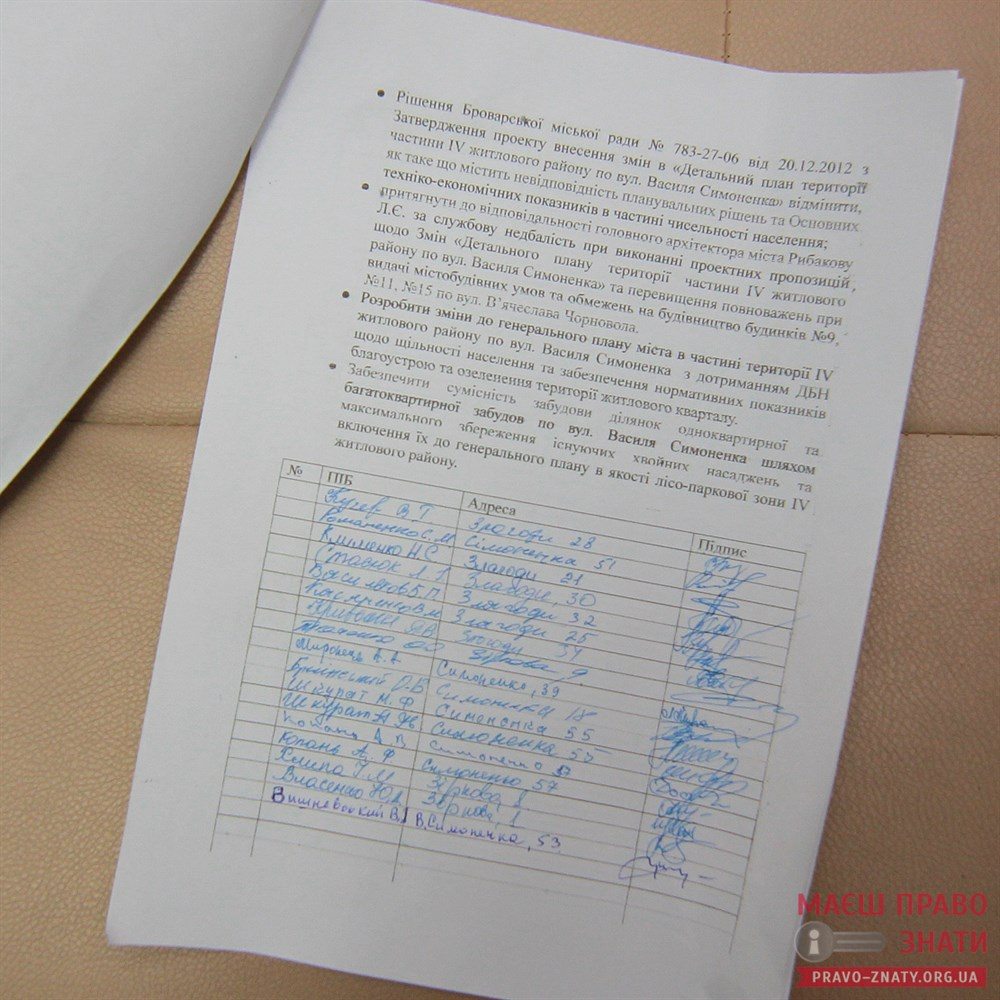 • Рішення Броварської міської ради № 783-27-06 від 20.12.2012 з
Затвердження проекту внесення змін в «Детальний план території
частини IV житлового району по вул. Василя Симоненка» відмінити,
як таке що містить невідповідність планувальних рішень та Основних
техніко-економічних показників в частині чисельності населення;
• притягнути до відповідальності головного архітектора міста Рибакову
Л.Є. за службову недбалість при виконанні проектних пропозицій
щодо Змін «Детального плану території частини IV житлового
району по вул. Василя Симоненка» та перевищення повноважень при
видачі містобудівних умов та обмежень на будівництво будинків №9,
№11, №15 по вул. В’ячеслава Чорновола.
• Розробити зміни до генерального плану міста в частині території IV
житлового району по вул. Василя Симоненка з дотриманням ДБН
щодо щільності населення та забезпечення нормативних показників
благоустрою та озеленення території житлового кварталу.
• Забезпечити сумісність забудови ділянок одноквартирної та
багатоквартирної забудов по вул. Василя Симоненка шляхом
максимального збереження існуючих хвойних насаджень та
включення їх до генерального плану в якості лісо-паркової зони IV
житлового району.
№ ПІБ Адреса Підпис
В Г Злагоди 28
Романенко С.М Сімоненка 51
Клименко Н.С. Злагоди 21
Злагоди, 30
Злагоди 32
Злагоди 25
Злагоди 34
Зіркова 9
Миронець А.А. Симоненко, 39
18
Шкурат М.Ф 55
Шкурат Симоненка 55
Симоненко
Копань А.Ф Симоненко 57
Хлипа Зіркова 1
Власенко Ю. Зіркова, 1
Вишневський В.Г В.Симоненка, 53
МАЄШ ПРАВО
ЗНАТИ
PRAVO-ZNATY.ORG.UA